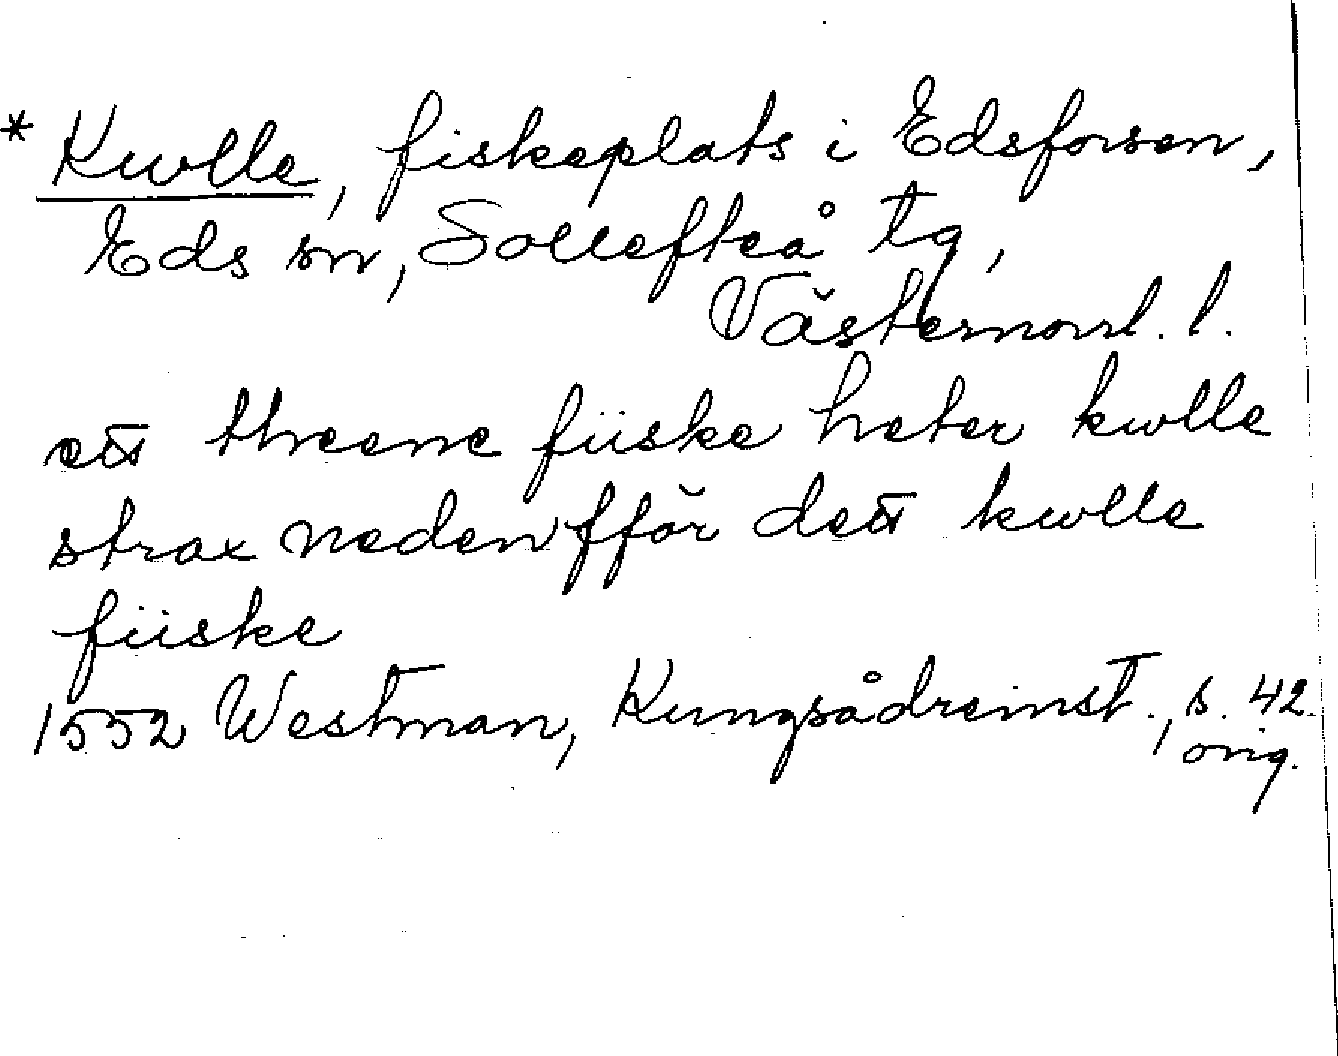 * Kwlle, fiskeplats i Edsforsen,
Eds sn, Sollefteå tg,
Västernorrl. l.
ett threene fiiske heter kwlle
strax nedenfför dett kwlle
fiiske
1552 Westman, Kungsådreinst., s. 42.
orig.